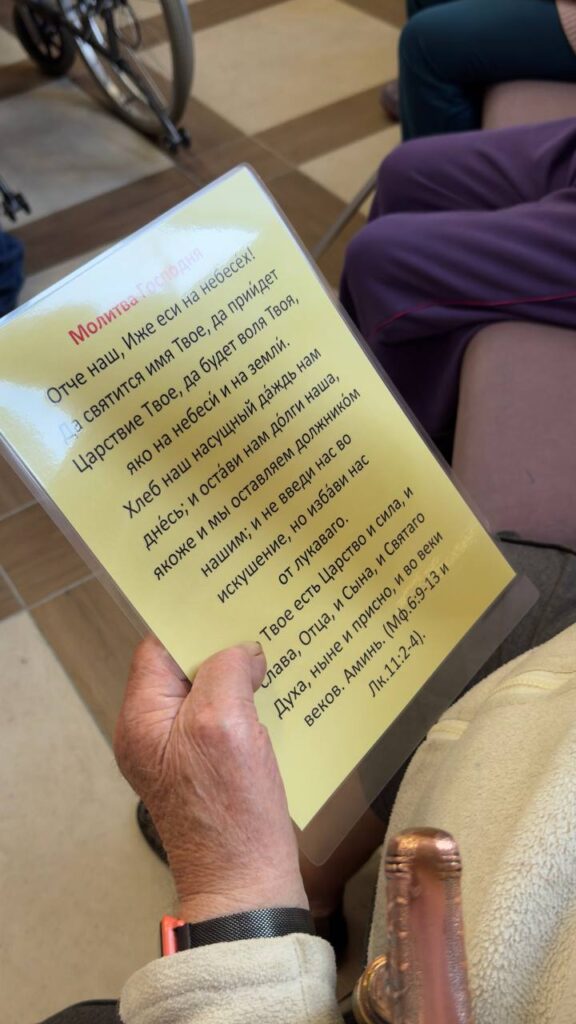 Молитва Господня
Отче наш, Иже еси на небесе́х!
Да святится имя Твое, да прии́дет
Царствие Твое, да будет воля Твоя,
яко на небеси́ и на земли́.
Хлеб наш насущный да́ждь нам
дне́сь; и оста́ви нам до́лги наша,
якоже и мы оставляем должнико́м
нашим; и не введи нас во
искушение, но изба́ви нас
от лукаваго.
Твое есть Царство и сила, и
слава, Отца, и Сына, и Святаго
Духа, ныне и присно, и во веки
веков. Аминь. (Мф.6:9-13 и
Лк.11:2-4).